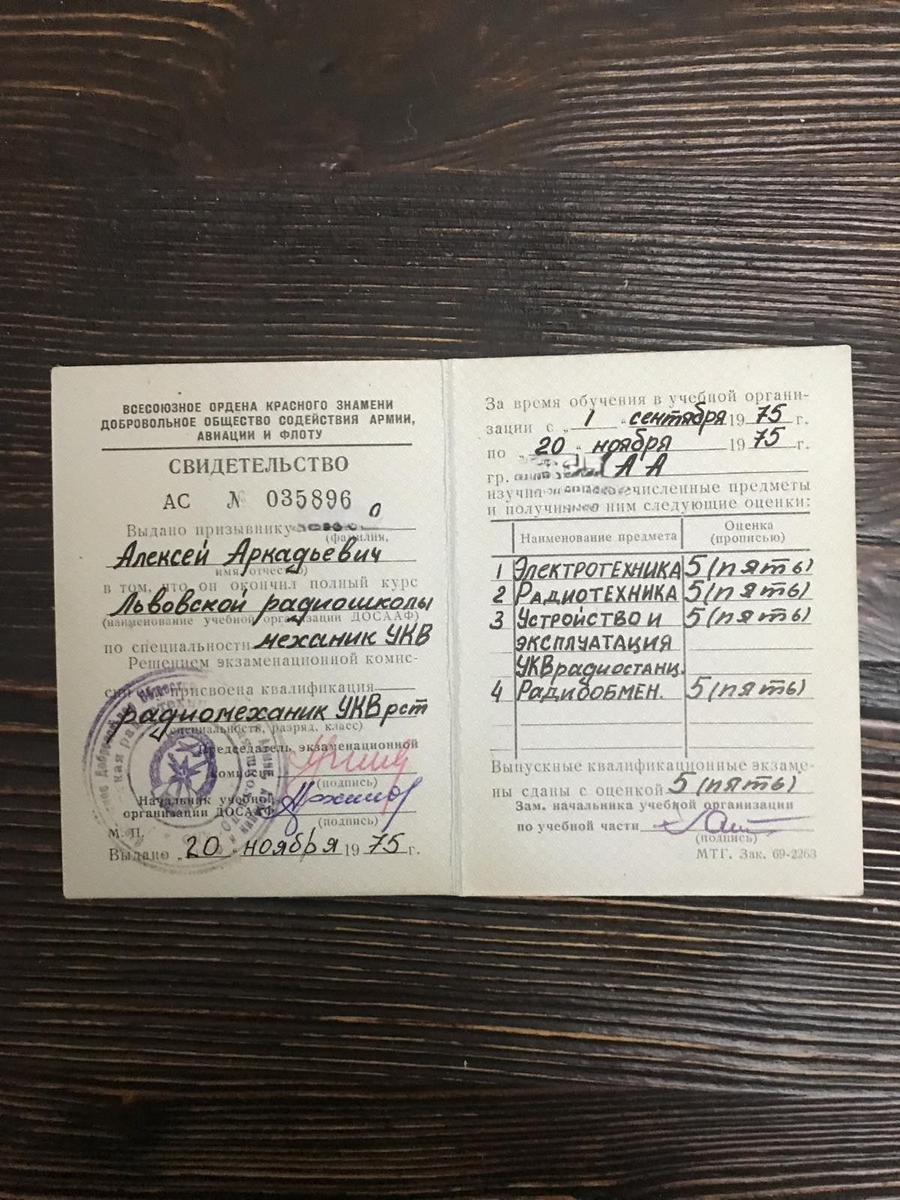 ВСЕСОЮЗНОЕ ОРДЕНА КРАСНОГО ЗНАМЕНИ
ДОБРОВОЛЬНОЕ ОБЩЕСТВО СОДЕЙСТВИЯ АРМИИ,
АВИАЦИИ И ФЛОТУ
СВИДЕТЕЛЬСТВО
АС № 035896
Выдано призывнику
(фамилия,
Алексей Аркадьевич
имя, отчество)
в том, что он окончил полный курс
Львовской радиошколы
(наименование учебной организации ДОСААФ)
по специальности механик УКВ
Решением экзаменационной комис-
сии присвоена квалификация
радиомеханик УКВ рст
(специальность, разряд, класс)
Председатель экзаменационной
комиссии
(подпись)
Начальник учебной
организации ДОСААФ
(подпись)
М. П.
Выдано „20" ноября 1975 г.
За время обучения в учебной органи-
зации с „1" сентября 1975 г.
по „20" ноября 1975 г.
гр. А А
изучил
численные предметы
и получил по ним следующие оценки:
Наименование предмета Оценка
(прописью)
1 Электротехника 5 (пять)
2 Радиотехника 5 (пять)
3 Устройство и 5 (пять)
эксплуатация
УКВ радиостанц.
4 Радиообмен. 5 (пять)
Выпускные квалификационные экзаме-
ны сданы с оценкой 5 (пять)
Зам. начальника учебной организации
по учебной части
(подпись)
МТГ. Зак. 69-2263